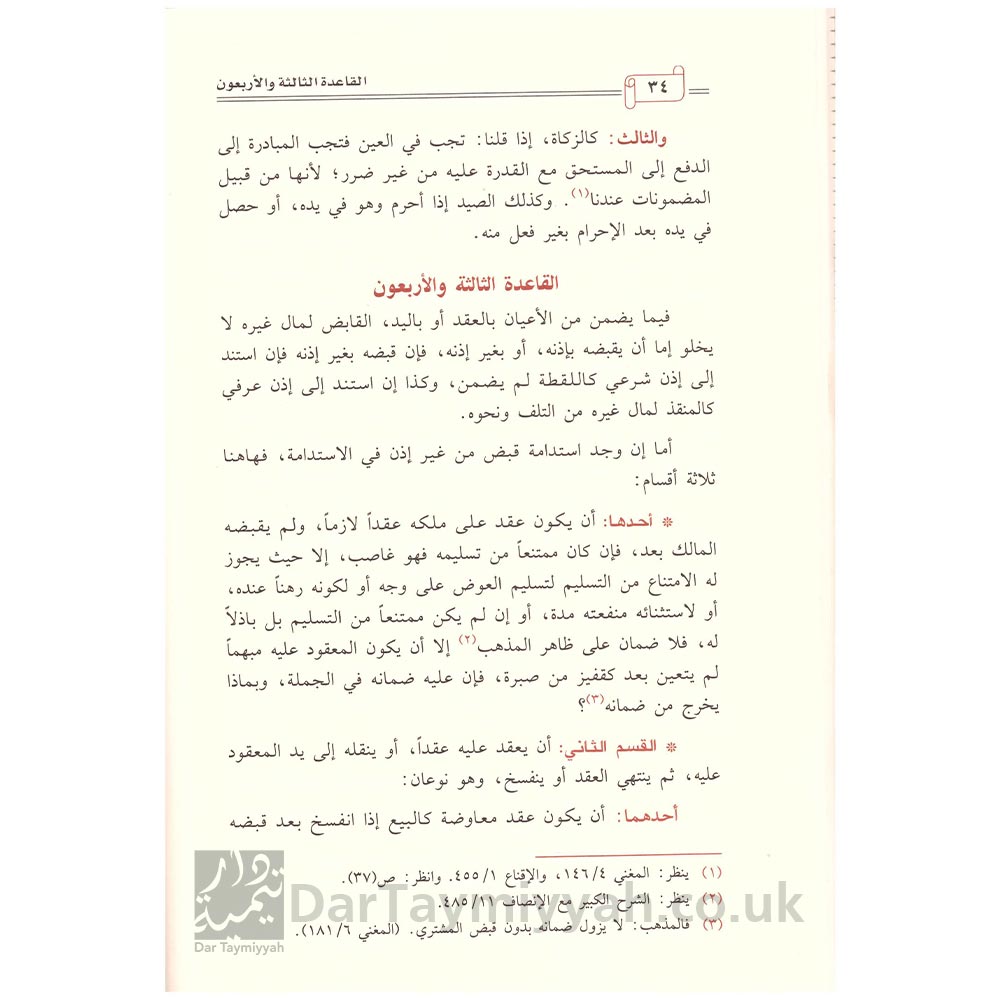 القاعدة الثالثة والأربعون
٣٤
والثالث: كالزكاة، إذا قلنا: تجب في العين فتجب المبادرة إلى
الدفع إلى المستحق مع القدرة عليه من غير ضرر؛ لأنها من قبيل
المضمونات عندنا(١). وكذلك الصيد إذا أحرم وهو في يده، أو حصل
في يده بعد الإحرام بغير فعل منه.
القاعدة الثالثة والأربعون
فيما يضمن من الأعيان بالعقد أو باليد، القابض لمال غيره لا
يخلو إما أن يقبضه بإذنه، أو بغير إذنه، فإن قبضه بغير إذنه فإن استند
إلى إذن شرعي كاللقطة لم يضمن، وكذا إن استند إلى إذن عرفي
كالمنقذ لمال غيره من التلف ونحوه.
أما إن وجد استدامة قبض من غير إذن في الاستدامة، فهاهنا
ثلاثة أقسام:
* أحدها: أن يكون عقد على ملكه عقداً لازماً، ولم يقبضه
المالك بعد، فإن كان ممتنعاً من تسليمه فهو غاصب، إلا حيث يجوز
له الامتناع من التسليم لتسليم العوض على وجه أو لكونه رهناً عنده،
أو لاستثنائه منفعته مدة، أو إن لم يكن ممتنعاً من التسليم بل باذلاً
له، فلا ضمان على ظاهر المذهب(٢) إلا أن يكون المعقود عليه مبهماً
لم يتعين بعد كقفيز من صبرة، فإن عليه ضمانه في الجملة، وبماذا
يخرج من ضمانه(٣)؟
* القسم الثاني: أن يعقد عليه عقداً، أو ينقله إلى يد المعقود
عليه، ثم ينتهي العقد أو ينفسخ، وهو نوعان:
أحدهما: أن يكون عقد معاوضة كالبيع إذا انفسخ بعد قبضه
(١) ينظر: المغني ١٤٦/٤، والإقناع ٤٥٥/١. وانظر: ص(٣٧).
(٢) ينظر: الشرح الكبير مع الإنصاف ٤٨٥/١١.
(٣) فالمذهب: لا يزول ضمانه بدون قبض المشتري. (المغني ١٨١/٦).
دار تيمية
Dar Taymiyyah
DarTaymiyyah.co.uk